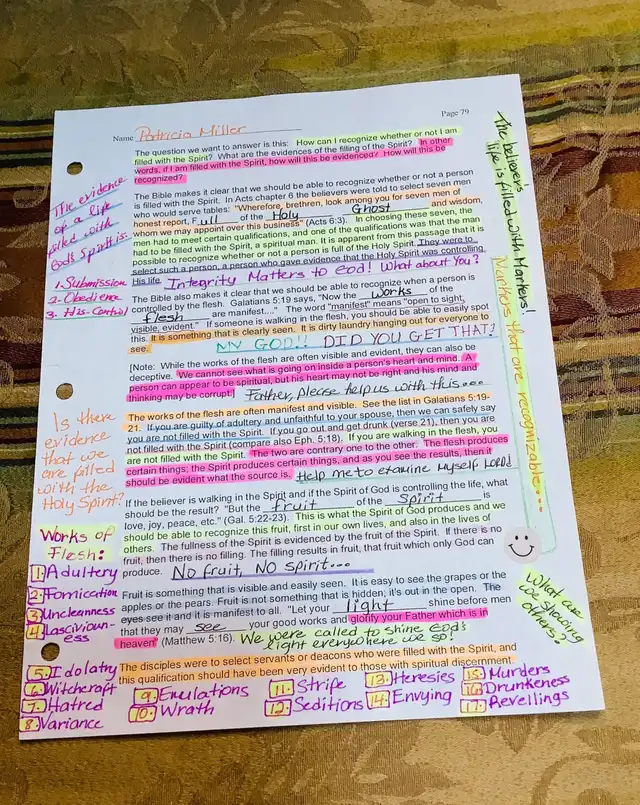 Page 79
Name Patricia Miller
The question we want to answer is this: How can I recognize whether or not I am
filled with the Spirit? What are the evidences of the filling of the Spirit? In other
words, if I am filled with the Spirit, how will this be evidenced? How will this be
recognized?
The Bible makes it clear that we should be able to recognize whether or not a person
is filled with the Spirit. In Acts chapter 6 the believers were told to select seven men
who would serve tables: "Wherefore, brethren, look among you for seven men of
honest report, Full of the Holy Ghost and wisdom,
whom we may appoint over this business" (Acts 6:3). In choosing these seven, the
men had to meet certain qualifications, and one of the qualifications was that the man
had to be filled with the Spirit, a spiritual man. It is apparent from this passage that it is
possible to recognize whether or not a person is full of the Holy Spirit. They were to
select such a person, a person who gave evidence that the Holy Spirit was controlling
His life. Integrity Matters to God! What about You?
The Bible also makes it clear that we should be able to recognize when a person is
controlled by the flesh. Galatians 5:19 says, "Now the works of the
flesh are manifest...." The word "manifest" means "open to sight,
visible, evident." If someone is walking in the flesh, you should be able to easily spot
this. It is something that is clearly seen. It is dirty laundry hanging out for everyone to
see. MY GOD!! DID YOU GET THAT!
[Note: While the works of the flesh are often visible and evident, they can also be
deceptive. We cannot see what is going on inside a person's heart and mind. A
person can appear to be spiritual, but his heart may not be right and his mind and
thinking may be corrupt.] Father, please help us with this...
The works of the flesh are often manifest and visible. See the list in Galatians 5:19-
21. If you are guilty of adultery and unfaithful to your spouse, then we can safely say
you are not filled with the Spirit. If you go out and get drunk (verse 21), then you are
not filled with the Spirit (compare also Eph. 5:18). If you are walking in the flesh, you
are not filled with the Spirit. The two are contrary one to the other. The flesh produces
certain things; the Spirit produces certain things, and as you see the results, then it
should be evident what the source is. Help me to examine Myself LORD!
If the believer is walking in the Spirit and if the Spirit of God is controlling the life, what
should be the result? "But the fruit of the Spirit is
love, joy, peace, etc." (Gal. 5:22-23). This is what the Spirit of God produces and we
should be able to recognize this fruit, first in our own lives, and also in the lives of
others. The fullness of the Spirit is evidenced by the fruit of the Spirit. If there is no
fruit, then there is no filling. The filling results in fruit, that fruit which only God can
produce. No fruit, NO spirit...
Fruit is something that is visible and easily seen. It is easy to see the grapes or the
apples or the pears. Fruit is not something that is hidden; it's out in the open. The
eyes see it and it is manifest to all. "Let your light shine before men
that they may see your good works and glorify your Father which is in
heaven" (Matthew 5:16). We were called to shine God's
light everywhere we go!
The disciples were to select servants or deacons who were filled with the Spirit, and
this qualification should have been very evident to those with spiritual discernment.
The evidence
of a life
filled with
God's Spirit is.
1. Submission
2. Obedience
3. His-Control
Is there
evidence
that we
are filled
with the
Holy Spirit?
Works of
Flesh:
1. Adultery
2. Fornication
3. Uncleanness
4. Lasciviousn-
ess
5. Idolatry
6. Witchcraft
7. Hatred
8. Variance
9. Emulations
10. Wrath
11. Strife
12. Seditions
13. Heresies
14. Envying
15. Murders
16. Drunkeness
17. Revellings
The believers
life is filled with Markers!
Markers that are recognizable....
What are
we showing
others?